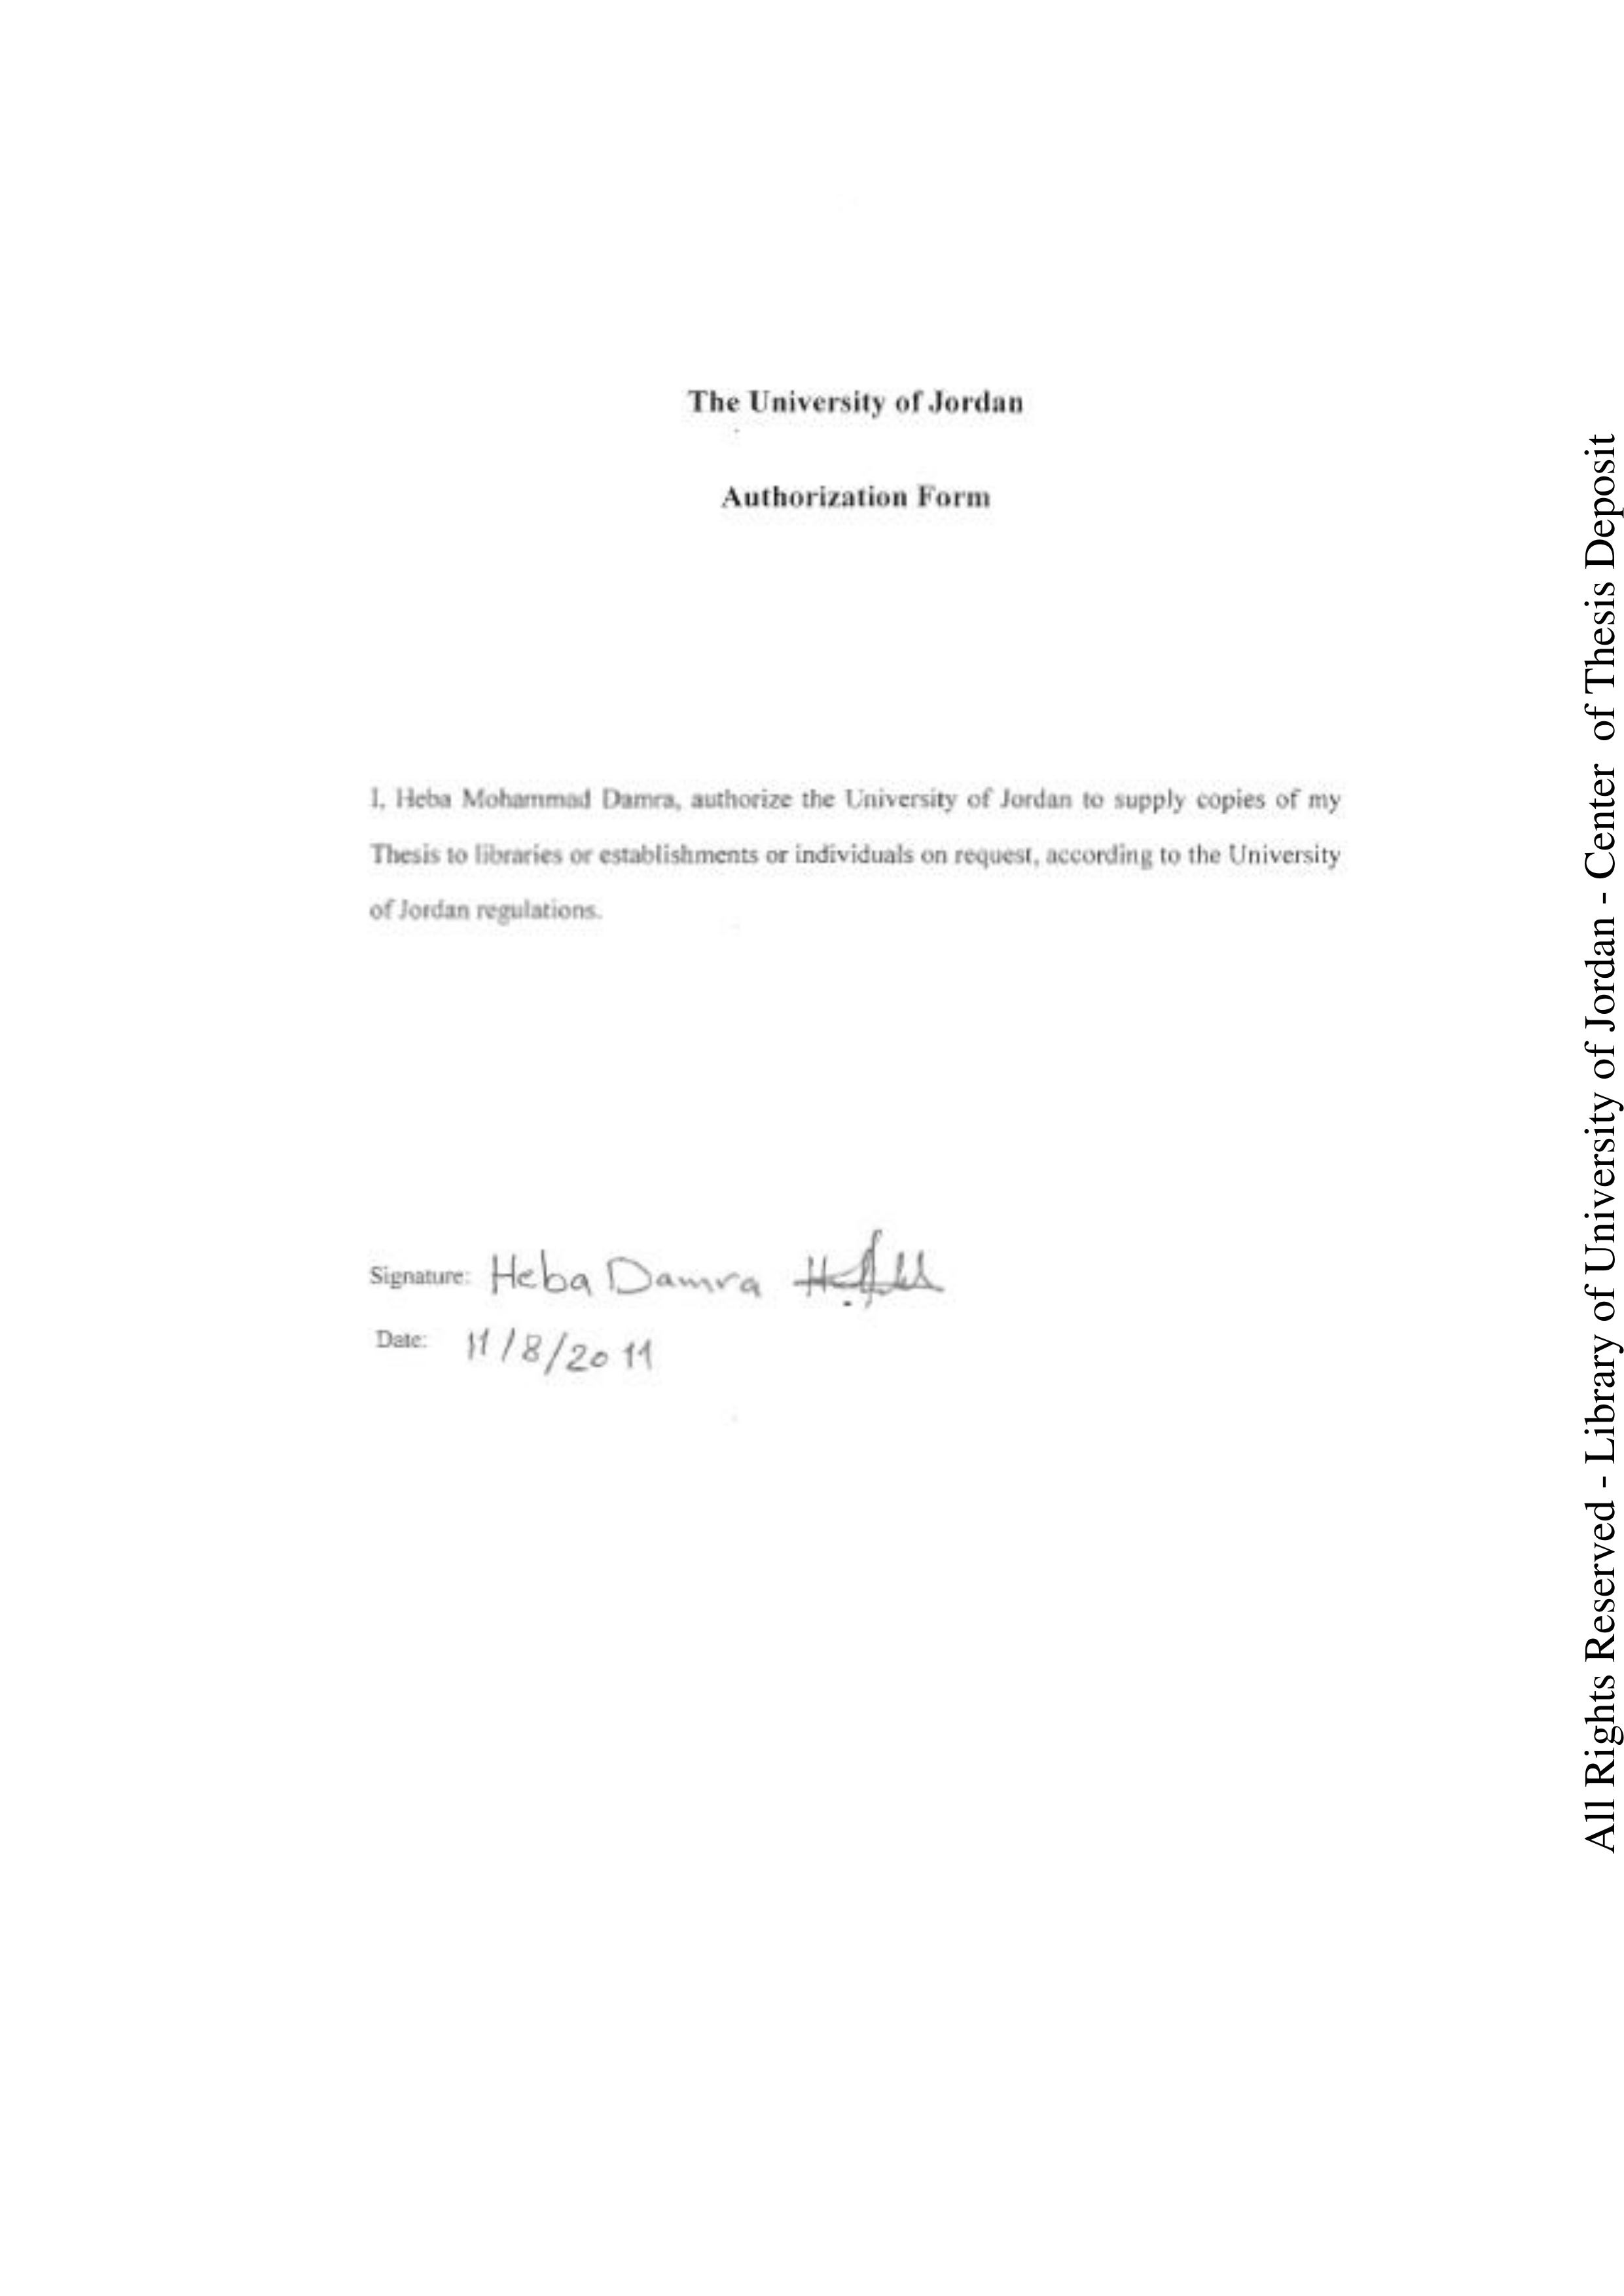 The University of Jordan
Authorization Form
I, Heba Mohammad Damra, authorize the University of Jordan to supply copies of my
Thesis to libraries or establishments or individuals on request, according to the University
of Jordan regulations.
Signature: Heba Damra
Date: 11/8/2011
All Rights Reserved - Library of University of Jordan - Center of Thesis Deposit